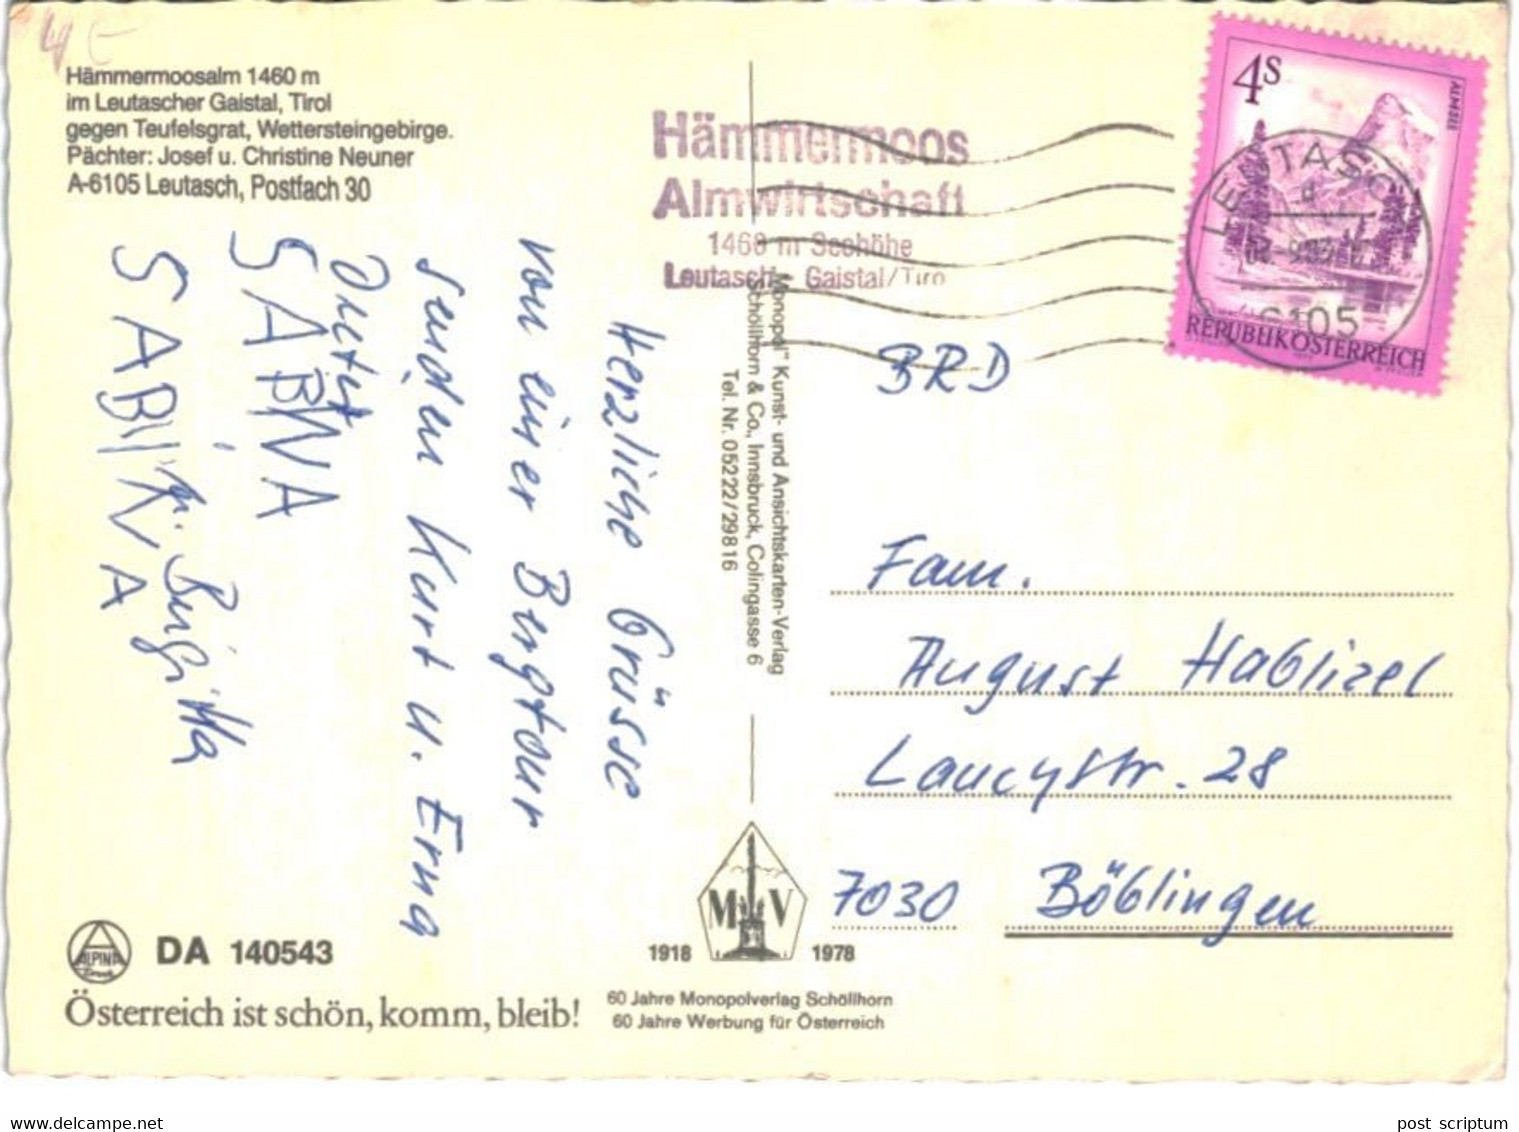 4.-
Hämmermoosalm 1460 m
im Leutascher Gaistal, Tirol
gegen Teufelsgrat, Wettersteingebirge.
Pächter: Josef u. Christine Neuner
A-6105 Leutasch, Postfach 30
Hämmermoos
Almwirtschaft
1460 m Seehöhe
Leutasch - Gaistal/Tirol
4S
ALMSEE
REPUBLIK ÖSTERREICH
LEUTASCH
6105
Herzliche Grüsse
von einer Bergtour
senden Kurt u. Erna
Dieter
SABINA
u. Birgitta
SABINA
"Monopol" Kunst- und Ansichtskarten-Verlag
Schöllhorn & Co., Innsbruck, Colingasse 6
Tel. Nr. 05222/29816
BRD
Fam.
August Hablizel
Laucystr. 28
7030 Böblingen
ALPINA
Druck
DA 140543
Österreich ist schön, komm, bleib!
M V
1918 1978
60 Jahre Monopolverlag Schöllhorn
60 Jahre Werbung für Österreich
post scriptum